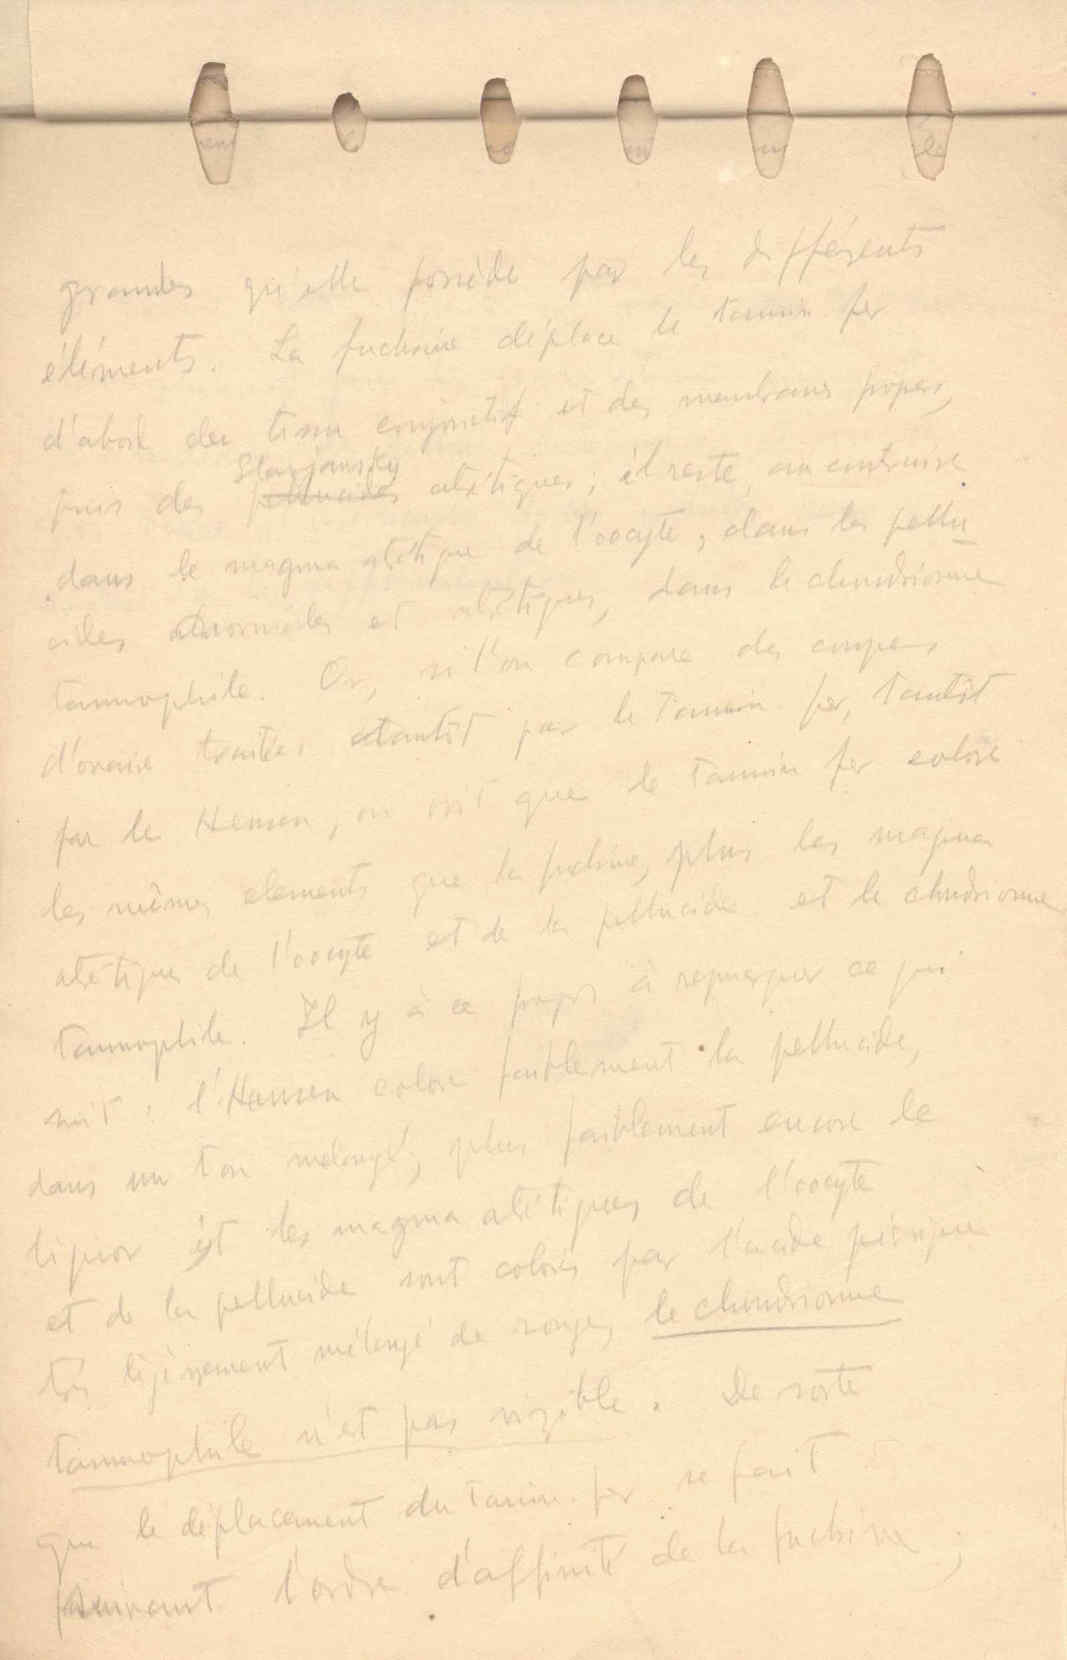 grandes qu'elle possède par les différents
éléments. La fuchsine déplace le tannin fer
d'abord des tissu conjonctif et des membranes propers,
puis des Slavjansky atrétiques ; il reste, au contraire
dans le magma atrétique de l'oocyte, dans les pellu
cides anormales et atrétiques, dans le chondriome
tannophile. Or, si l'on compare des coupes
d'ovaire traitées tantôt par le tannin fer, tantôt
par le Hansen, on voit que le tannin fer colore
les mêmes elements que la fuchsine, plus les magma
atrétiques de l'oocyte et de la pellucide et le chondriome
tannophile. Il y à ce propos à remarquer ce qui
suit : l'Hansen colore faiblement la pellucide,
dans un ton mélangé, plus faiblement encore le
liquor et les magma atrétiques de l'oocyte
et de la pellucide sont colorés par l'acide picrique
très légèrement mélangé de rouge, le chondriome
tannophile n'est pas visible. De sorte
que le déplacement du tannin fer se fait
suivant l'ordre d'affinité de la fuchsine ;